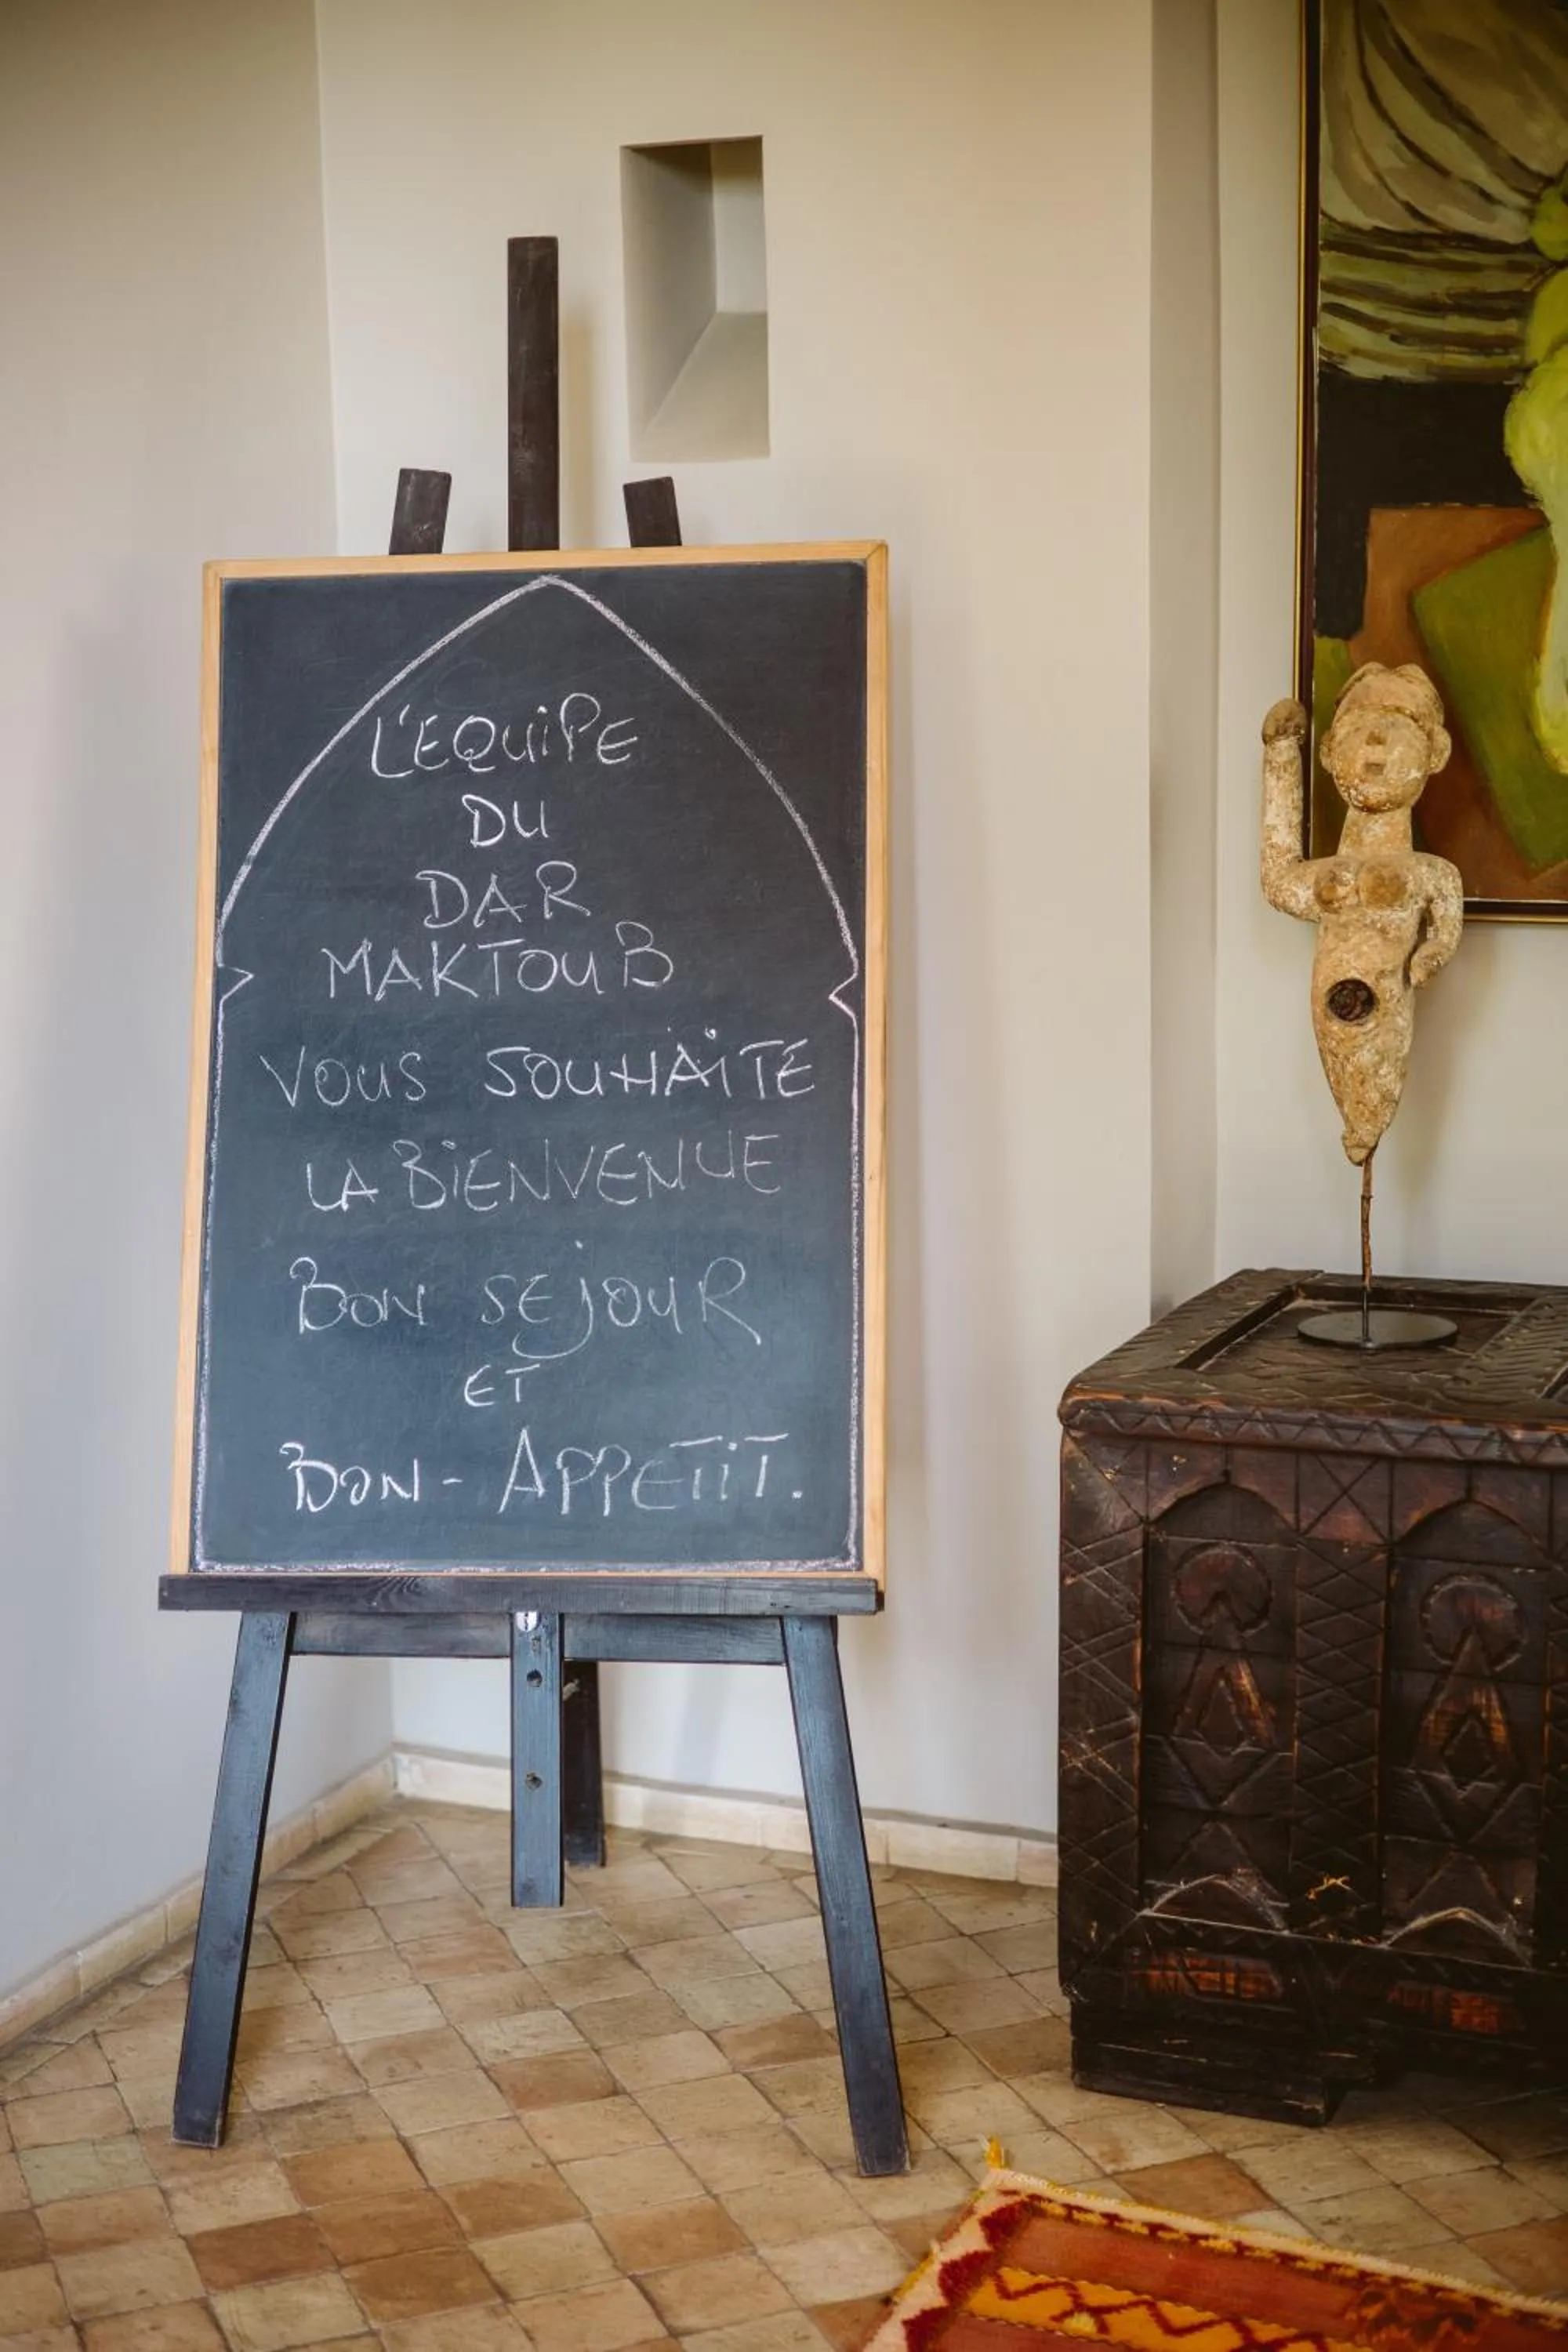 L'EQUIPE
DU
DAR
MAKTOUB
VOUS SOUHAiTE
LA BiENVENUE
BON SEjOUR
ET
BON - APPETiT.